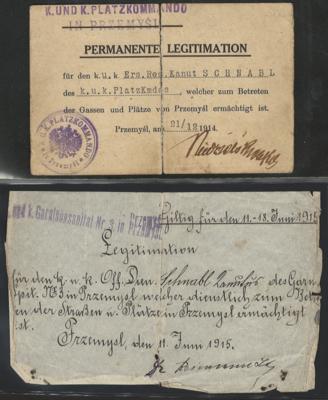 K. UND K. PLATZKOMMANDO
IN PRZEMYŚL
PERMANENTE LEGITIMATION
für den k.u.k Ers.Res.Kanut SCHNABL
des k.u.k.PlatzKmdos, welcher zum Betreten
der Gassen und Plätze von Przemyśl ermächtigt ist.
Przemyśl, am 21/12 1914.
K.K. PLATZKOMMANDO
und k Garnisonsspital Nr. 3 in PRZEMYŚL
Giltig für den 11.-18. Juni 1915
Legitimation
für den k. u. k. Off. Dien. Schnabl Kanutus des Garn
Spit. No 3 in Przemysl welcher dienstlich zum Betre
en der Straßen u. Plätze in Przemysl ermächtigt
ist.
Przemysl, am 11. Juni 1915.